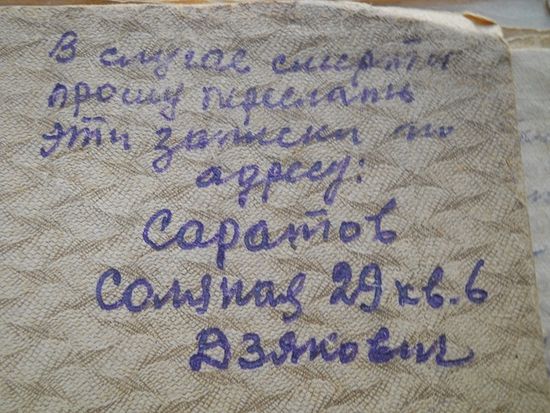 В случае смерти
прошу переслать
эти записки по
адресу:
Саратов
Соляная 29 кв. 6
Дзякович